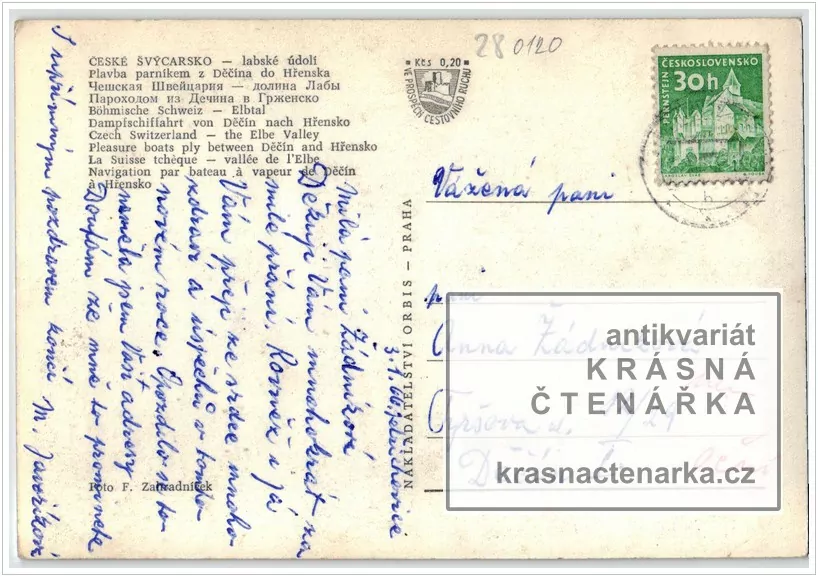 28 0120
ČESKÉ ŠVÝCARSKO — labské údolí
Plavba parníkem z Děčína do Hřenska
Чешская Швейцария — долина Лабы
Пароходом из Дечина в Грженско
Böhmische Schweiz — Elbtal
Dampfschiffahrt von Děčín nach Hřensko
Czech Switzerland — the Elbe Valley
Pleasure boats ply between Děčín and Hřensko
La Suisse tchèque — vallée de l'Elbe
Navigation par bateau à vapeur de Děčín
à Hřensko
Kčs 0,20
VE PROSPĚCH CESTOVNÍHO RUCHU
ČESKOSLOVENSKO
30h
PERNŠTEJN
3.1.
Milá paní Žádníková
Děkuji Vám mnohokrát na
milé přání. Rovněž i já
Vám přeji ze srdce mnoho
zdraví a úspěchů v tomto
novém roce. Opozdilo se to
neměla jsem Vaší adresy
Doufám že mně to prominete
S upřímným pozdravem končí M. Javoríková
Foto F. Zahradníček
NAKLADATELSTVÍ ORBIS — PRAHA
Vážená paní
paní
Anna Žádníková
Tyršova
antikvariát
KRÁSNÁ
ČTENÁŘKA
krasnactenarka.cz